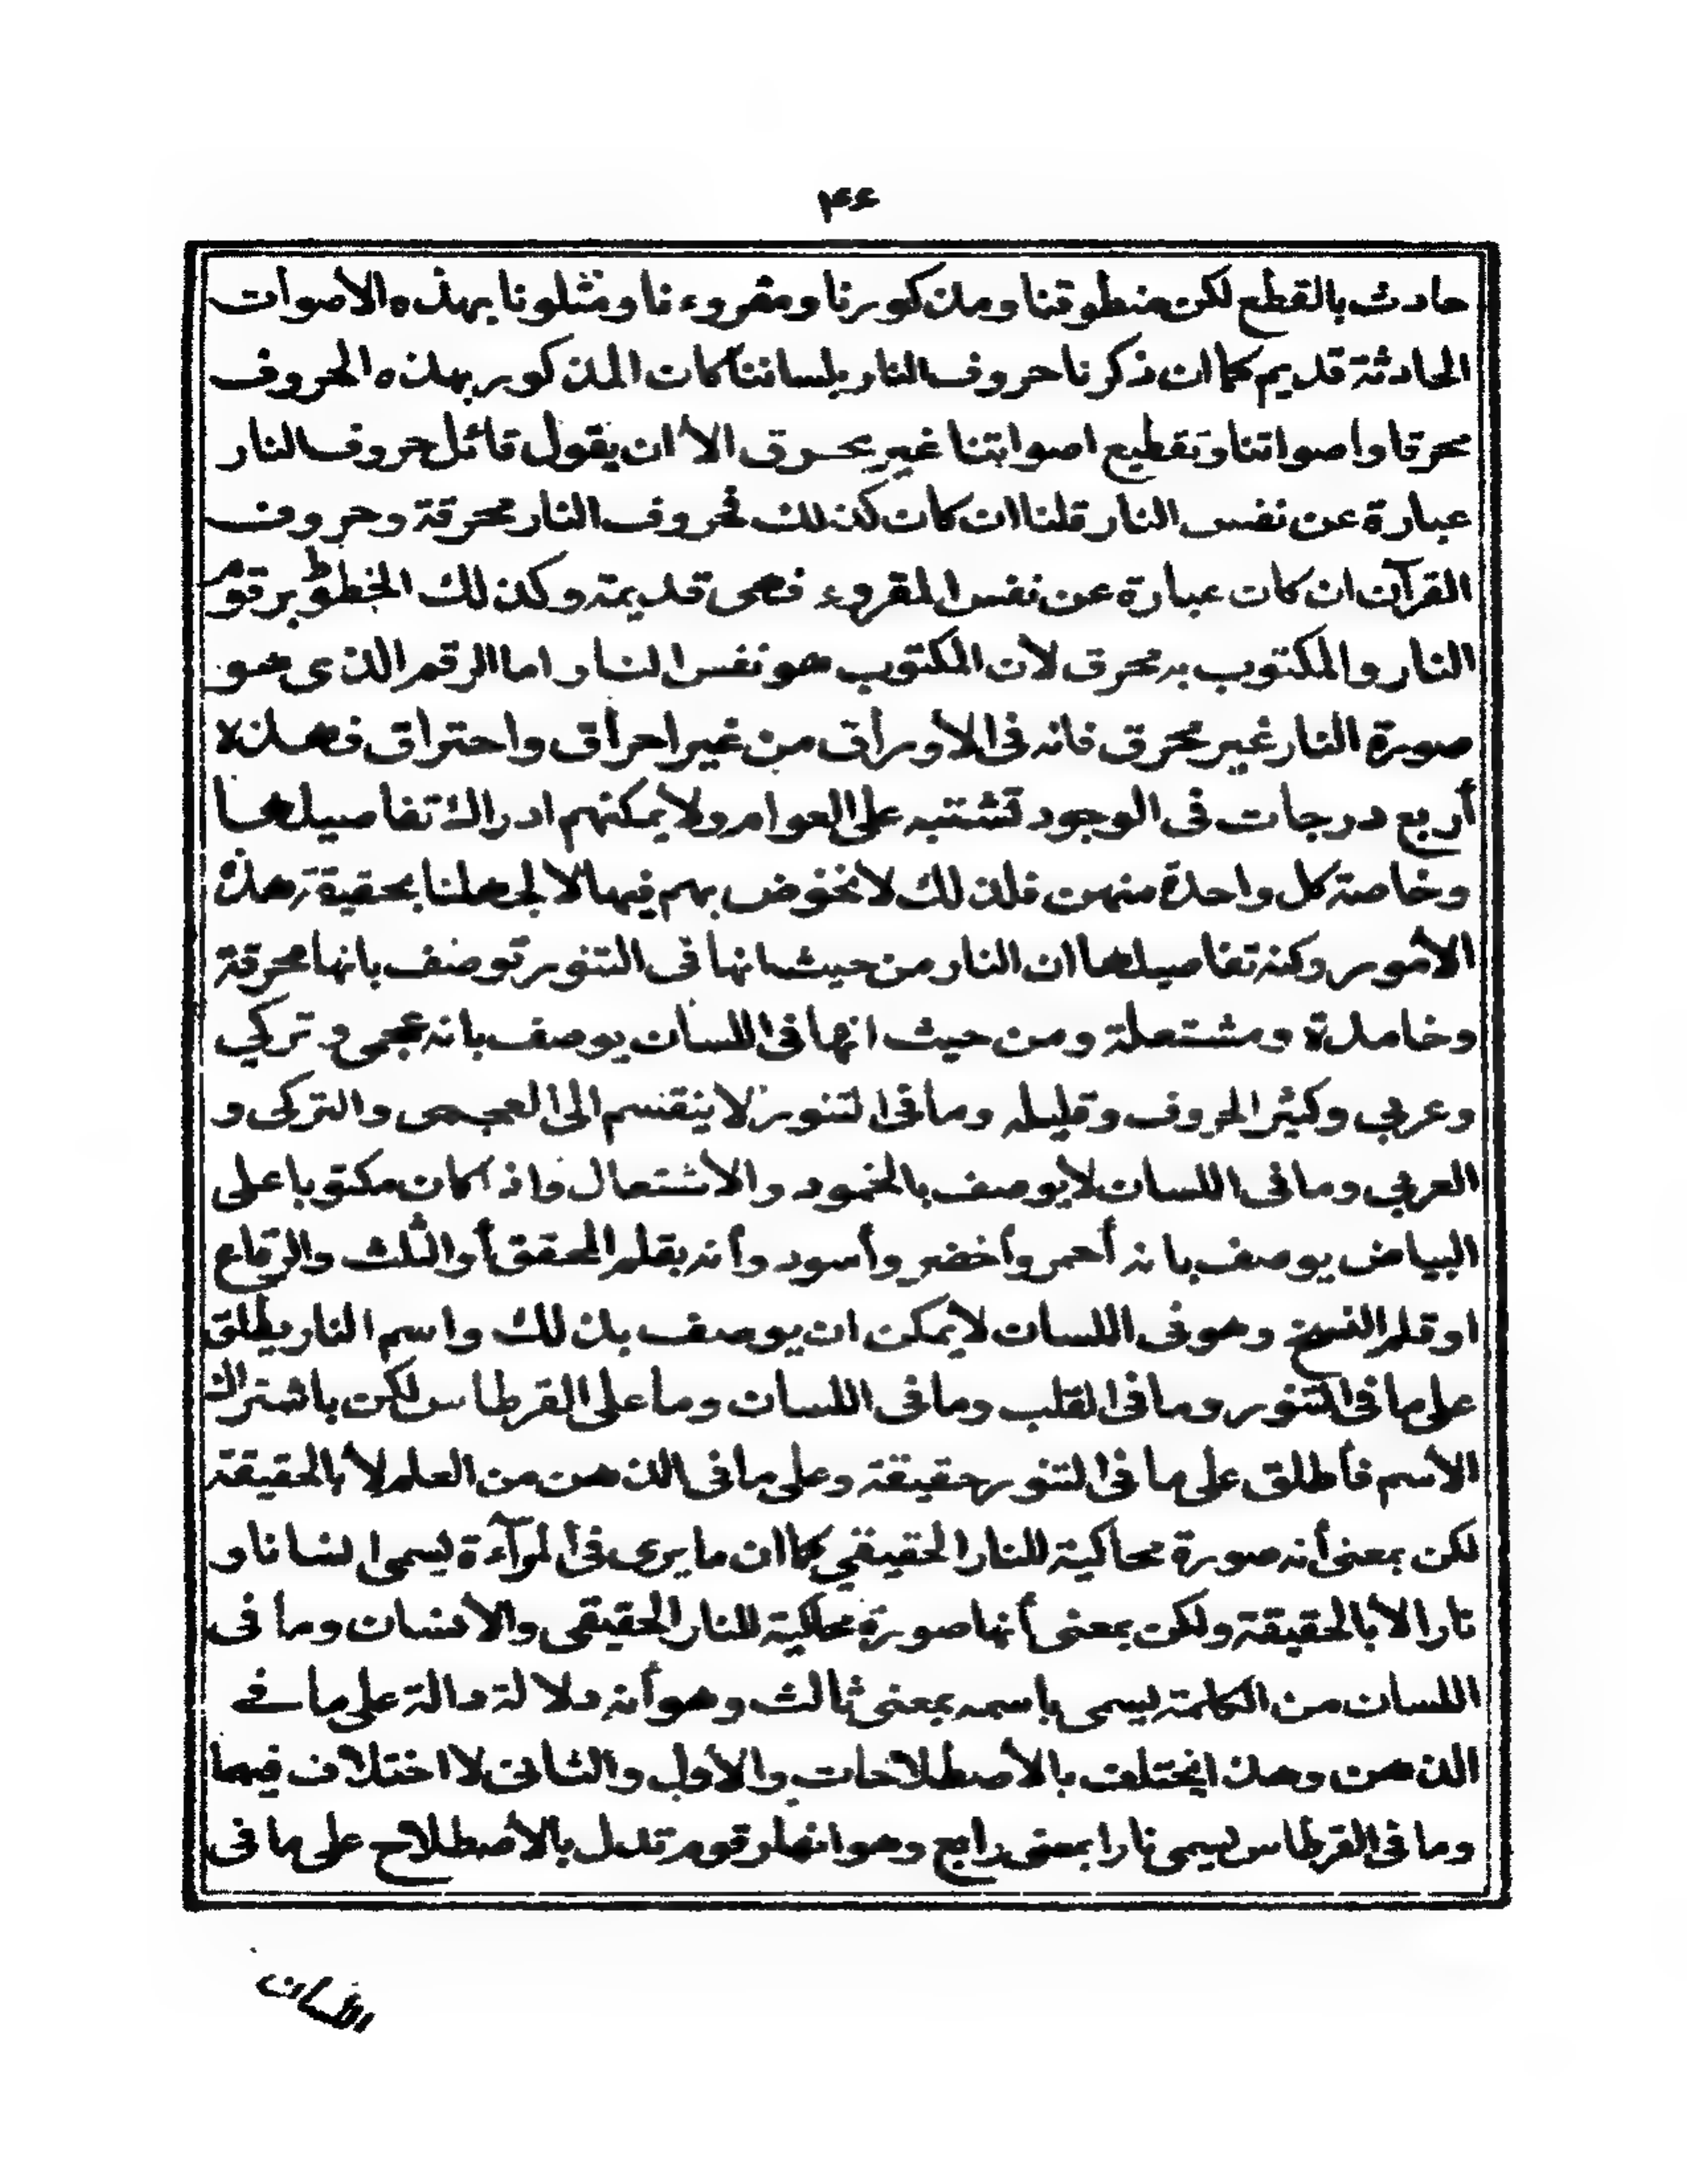 ۴۶
حادث بالقطع لكن منطوقنا ومذكورنا ومقروءنا ومتلونا بهذه الأصوات
الحادثة قديم كما ان ذكرنا حروف النار بلساننا كان المذكور بهذه الحروف
محرقا واصواتنا وتقطيع اصواتنا غير محرق الا ان يقول قائل حروف النار
عبارة عن نفس النار قلنا ان كان كذلك فحروف النار محرقة وحروف
القرآن ان كان عبارة عن نفس المقروء فهى قديمة وكذلك الخطوط برقوم
النار والمكتوب به محرق لان المكتوب هو نفس النار اما الرقم الذى هو
صورة النار غير محرق فانه فى الأوراق من غير احراق واحتراق فهذه
أربع درجات فى الوجود تشتبه على العوام ولا يمكنهم ادراك تفاصيلها
وخاصة كل واحدة منهن فلذلك لا نخوض بهم فيها لا لجهلنا بحقيقة هذه
الأمور وكنه تفاصيلها ان النار من حيث انها فى التنور توصف بانها محرقة
وخامدة ومشتعلة ومن حيث انها فى اللسان يوصف بانه عجمى وتركي
وعربي وكثير الحروف وقليله وما فى التنور لا ينقسم الى العجمى والتركى و
العربي وما فى اللسان لا يوصف بالخمود والأشتعال واذا كان مكتوبا على
البياض يوصف بانه أحمر وأخضر وأسود وأنه بقلم المحقق أو الثلث والرقاع
او قلم النسخ وهو فى اللسان لا يمكن ان يوصف بذلك واسم النار يطلق
على ما فى التنور وما فى القلب وما فى اللسان وما على القرطاس لكن باشتراك
الأسم فأطلق على ما فى التنور حقيقة وعلى ما فى الذهن من العلم لا بالحقيقة
لكن بمعنى أنه صورة محاكية للنار الحقيقي كما ان ما يرى فى المرآءة يسمى انسانا و
نارا لا بالحقيقة ولكن بمعنى أنها صورة محاكية للنار الحقيقى والأنسان وما فى
اللسان من الكلمة يسمى باسمه بمعنى ثالث وهو أنه دلالة دالة على ما فے
الذهن وهذا يختلف بالأصطلاحات والأول والثانى لا اختلاف فيهما
وما فى القرطاس يسمى نارا بمعنى رابع وهو انها رقوم تدل بالأصطلاح على ما فى
اللسان